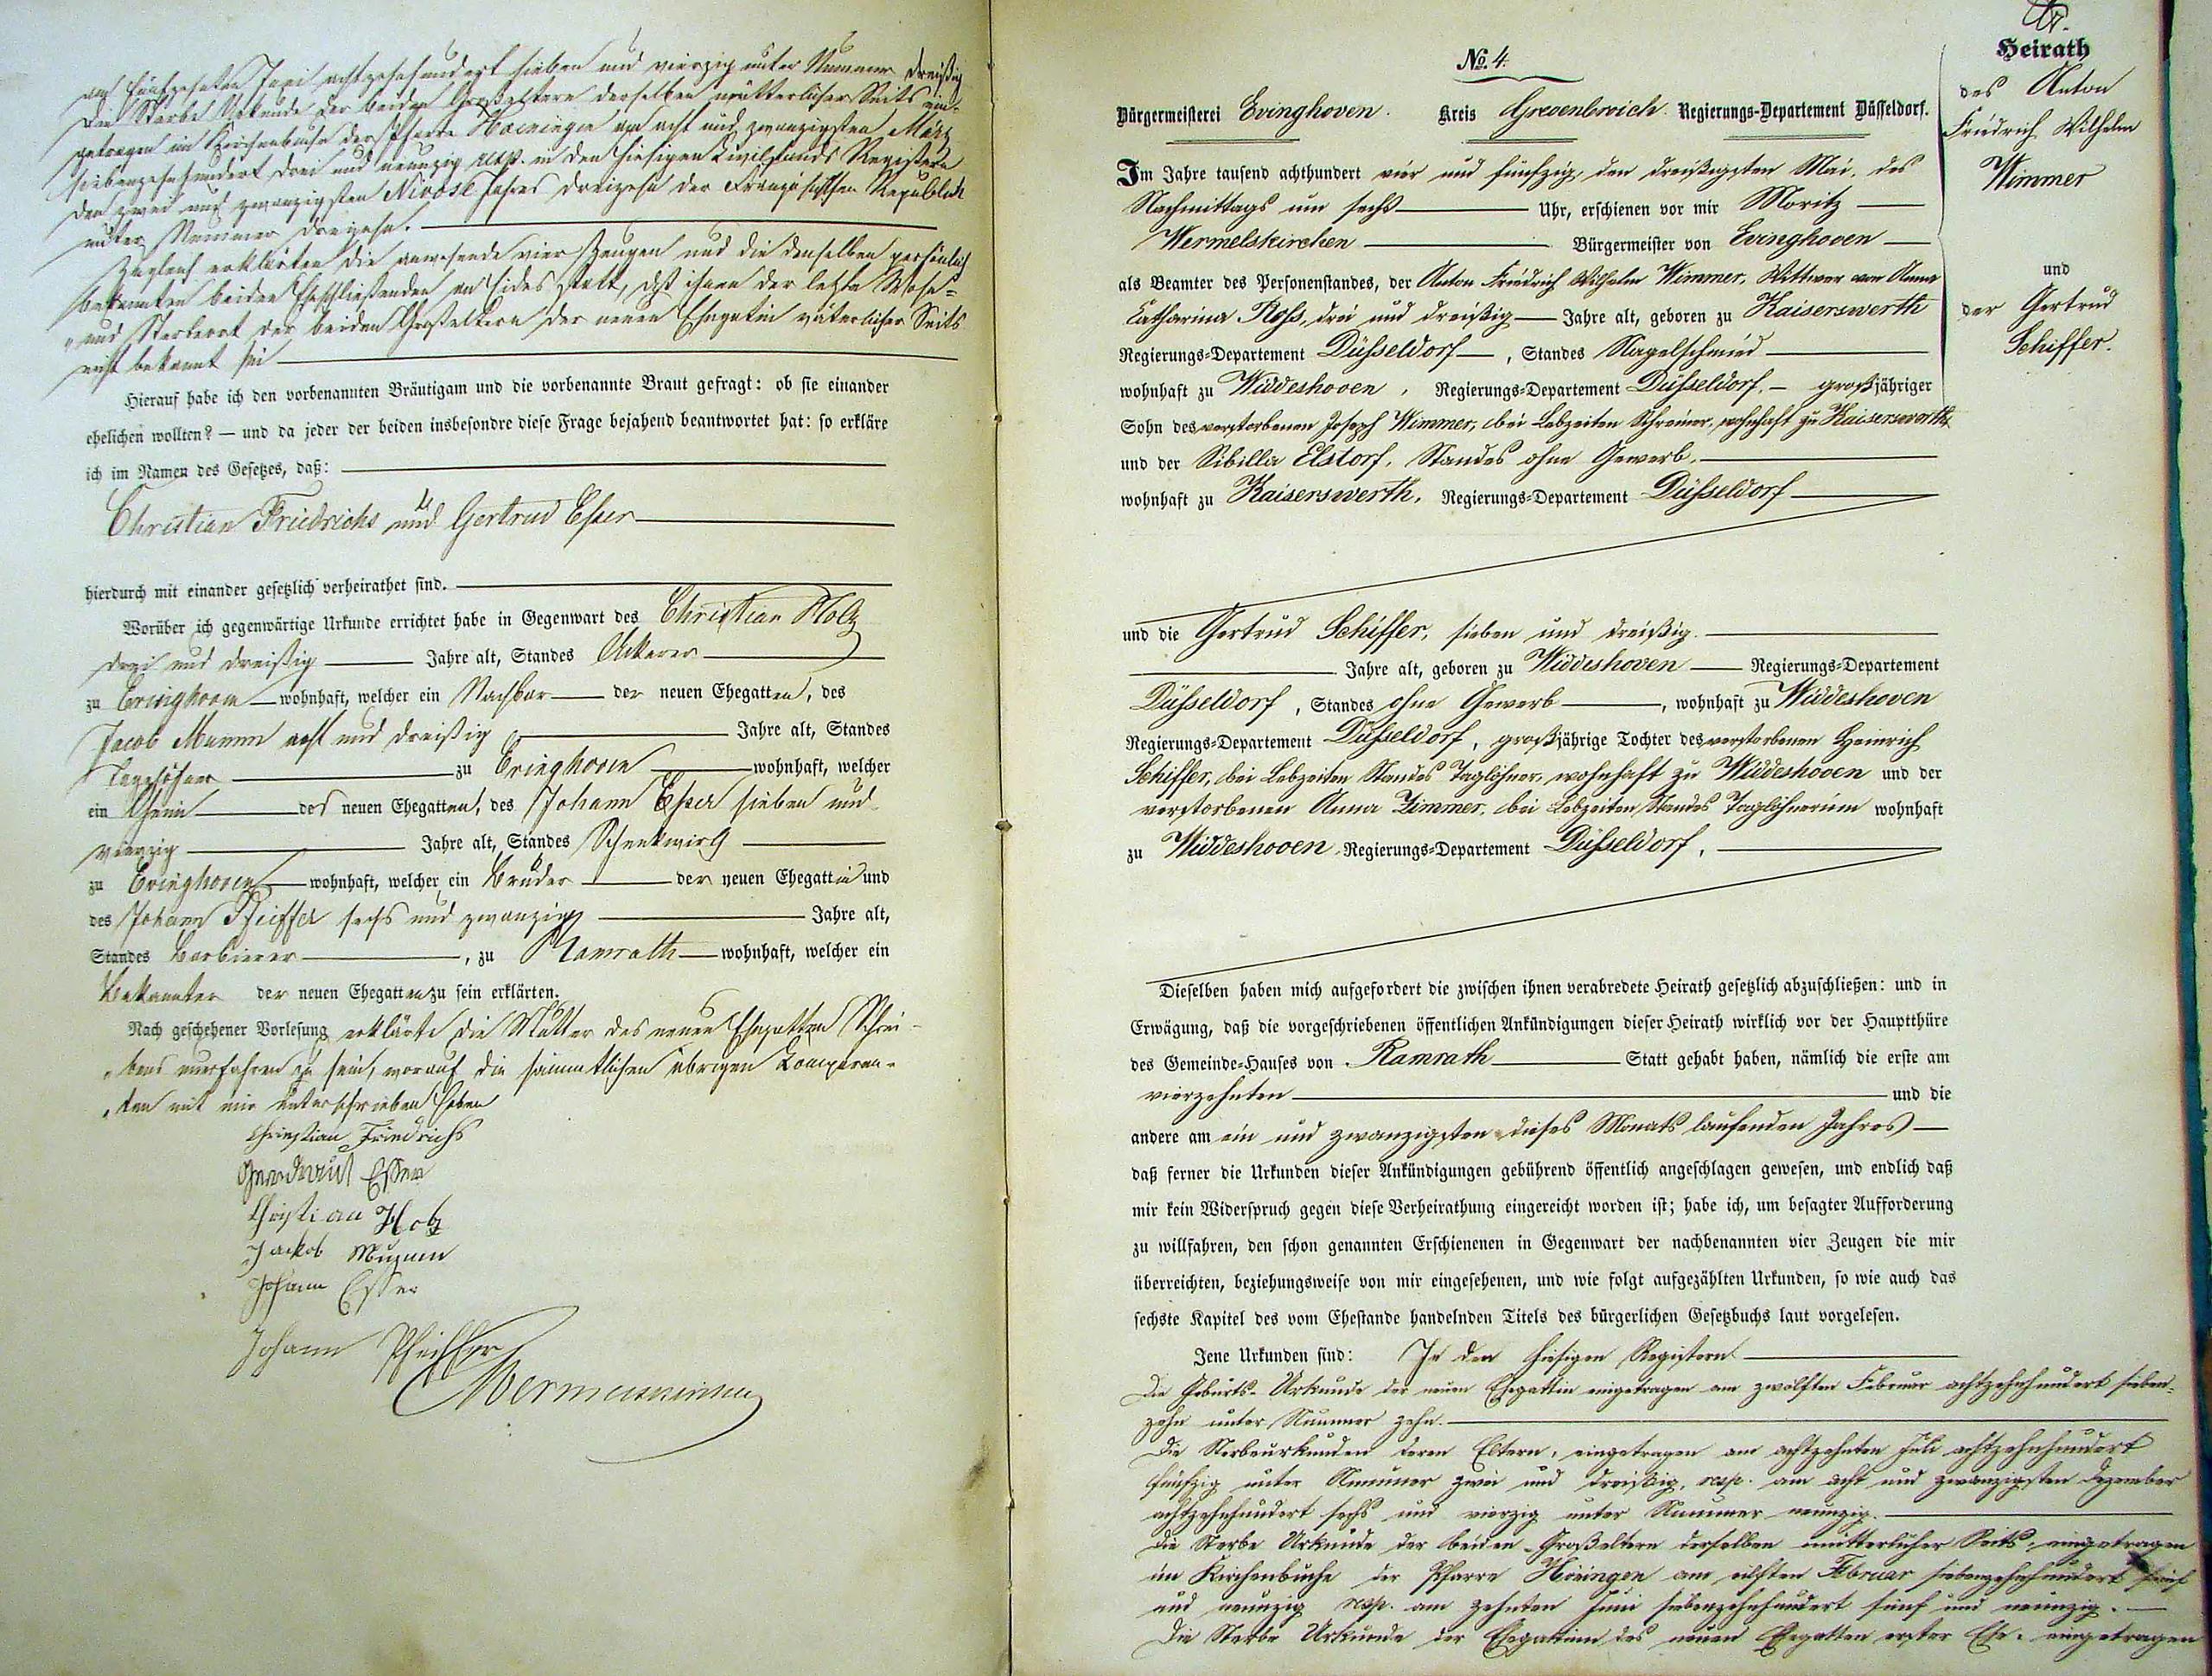 am fünfzehnten Juni achtzehnhundert sieben und vierzig unter Nummer dreißig
Die Sterbe Urkunde der beiden Großeltern derselben mütterlicher Seits ein-
getragen im Kirchenbuche der Pfarre Hoeningen am acht und zwanzigsten März
siebenzehnhundert drei und neunzig resp. in den hiesigen Civilstands Registern
den zwei und zwanzigsten Nivose Jahres dreizehn der Französischen Republik
unter Nummer dreizehn.
Zugleich erklärten die anwesende vier Zeugen und die denselben persönlich
bekannten beiden Eheschließenden an Eides statt, daß ihnen der letzte Wohn-
und Sterbeort der beiden Großeltern der neuen Ehegattin väterlicher Seits
nicht bekannt sei
Hierauf habe ich den vorbenannten Bräutigam und die vorbenannte Braut gefragt: ob sie einander
ehelichen wollten? — und da jeder der beiden insbesondre diese Frage bejahend beantwortet hat: so erkläre
ich im Namen des Gesetzes, daß:
Christian Friedrichs und Gertrud Esser
hierdurch mit einander gesetzlich verheirathet sind.
Worüber ich gegenwärtige Urkunde errichtet habe in Gegenwart des Christian Holz
drei und dreißig Jahre alt, Standes Ackerer
zu Evinghoven wohnhaft, welcher ein Nachbar der neuen Ehegatten, des
Jacob Mumm acht und dreißig Jahre alt, Standes
Tagelöhner zu Evinghoven wohnhaft, welcher
ein Oheim des neuen Ehegatten, des Johann Esser sieben und
vierzig Jahre alt, Standes Schenkwirth
zu Evinghoven wohnhaft, welcher ein Bruder der neuen Ehegattin und
des Johann Pfeiffer sechs und zwanzig Jahre alt,
Standes Barbierer, zu Ramrath wohnhaft, welcher ein
Bekannter der neuen Ehegatten zu sein erklärten.
Nach geschehener Vorlesung erklärte die Mutter des neuen Ehegatten Schrei-
bens unerfahren zu sein, worauf die sämmtlichen übrigen Comparen-
ten mit mir unterschrieben haben
Christian Friedrichs
Gerdrud Esser
Christian Holz
Jackob Mumm
Johann Esser
Johann Pfeiffer
No. 4.
Bürgermeisterei Evinghoven. Kreis Grevenbroich Regierungs-Departement Düsseldorf.
Im Jahre tausend achthundert vier und fünfzig, den dreißigsten Mai, des
Nachmittags um sechs Uhr, erschienen vor mir Moritz
Wermelskirchen Bürgermeister von Evinghoven
als Beamter des Personenstandes, der Anton Friedrich Wilhelm Wimmer, Wittwer von Anna
Catharina Ross, drei und dreißig Jahre alt, geboren zu Kaiserswerth
Regierungs-Departement Düsseldorf, Standes Nagelschmied
wohnhaft zu Widdeshoven, Regierungs-Departement Düsseldorf, großjähriger
Sohn des verstorbenen Joseph Wimmer, bei Lebzeiten Schreiner, wohnhaft zu Kaiserswerth
und der Sibilla Elstorf, Standes ohne Gewerb,
wohnhaft zu Kaiserswerth, Regierungs-Departement Düsseldorf
und die Gertrud Schiffer, sieben und dreißig
Jahre alt, geboren zu Widdeshoven Regierungs-Departement
Düsseldorf, Standes ohne Gewerb, wohnhaft zu Widdeshoven
Regierungs-Departement Düsseldorf, großjährige Tochter des verstorbenen Heinrich
Schiffer, bei Lebzeiten Standes Taglöhner, wohnhaft zu Widdeshoven und der
verstorbenen Anna Zimmer, bei Lebzeiten Standes Taglöhnerinn wohnhaft
zu Widdeshoven, Regierungs-Departement Düsseldorf,
Dieselben haben mich aufgefordert die zwischen ihnen verabredete Heirath gesetzlich abzuschließen: und in
Erwägung, daß die vorgeschriebenen öffentlichen Ankündigungen dieser Heirath wirklich vor der Hauptthüre
des Gemeinde-Hauses von Ramrath Statt gehabt haben, nämlich die erste am
vierzehnten und die
andere am ein und zwanzigsten dieses Monats laufenden Jahres
daß ferner die Urkunden dieser Ankündigungen gebührend öffentlich angeschlagen gewesen, und endlich daß
mir kein Widerspruch gegen diese Verheirathung eingereicht worden ist; habe ich, um besagter Aufforderung
zu willfahren, den schon genannten Erschienenen in Gegenwart der nachbenannten vier Zeugen die mir
überreichten, beziehungsweise von mir eingesehenen, und wie folgt aufgezählten Urkunden, so wie auch das
sechste Kapitel des vom Ehestande handelnden Titels des bürgerlichen Gesetzbuchs laut vorgelesen.
Jene Urkunden sind: In den hiesigen Registern
Die Geburts-Urkunde der neuen Ehegattin eingetragen am zwölften Februar achtzehnhundert sieben-
zehn unter Nummer zehn.
Die Sterbeurkunden deren Eltern, eingetragen am achtzehnten Juli achtzehnhundert
fünfzig unter Nummer zwei und dreißig, resp. am acht und zwanzigsten Dezember
achtzehnhundert sechs und vierzig unter Nummer neunzig.
Die Sterbe Urkunde der beiden Großeltern derselben mütterlicher Seits, eingetragen
im Kirchenbuche der Pfarre Höningen am eilften Februar siebenzehnhundert fünf
und neunzig resp. am zehnten Juni siebenzehnhundert fünf und neunzig.
Die Sterbe Urkunde der Ehegattinn des neuen Ehegatten erster Ehe, eingetragen
Heirath
des Anton
Friedrich Wilhelm
Wimmer
und
der Gertrud
Schiffer.